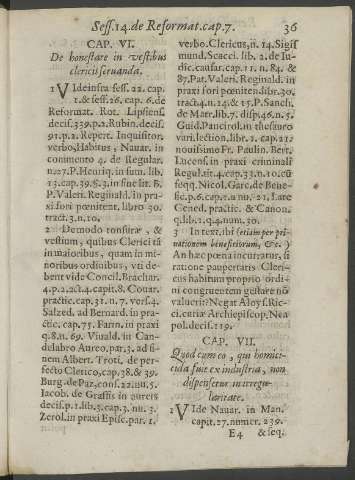 Sess. 14. de Reformat. cap. 7. 36
CAP. VI.
De honestare in vestibus
clericis seruanda.
1 VIde infra sess. 22. cap.
1. & sess. 26. cap. 6. de
Reformat. Rot. Lipsiens.
decis. 339. p. 2. Rubin. decis.
91. p. 2. Repert. Inquisitor.
verbo, Habitus, Nauar. in
commento 4. de Regular.
n. 27. P. Henriq. in sum. lib.
13. cap. 39. §. 3. in fine lit. B.
P. Valeri. Reginald. in pra
xi fori pœnitent. libro 30.
tract. 3. n. 10.
2 De modo tonsuræ, &
vestium, quibus Clerici tã
in maioribus, quam in mi-
noribus ordinibus, vti de-
bent vide Concil. Brachar.
4. p. 2. act. 4. capit. 8. Couar.
practic. cap. 31. n. 7. vers. 4.
Salzed. ad Bernard. in pra-
ctic. cap. 75. Farin. in praxi
q. 8. n. 69. Viuald. in Can-
delabro Aureo. par. 3. ad fi-
nem Albert. Troti. de per-
fecto Clerico, cap. 38. & 39.
Burg. de Paz. cons. 22. nu. 5.
Iacob. de Graffis in aureis
decis. p. 1. lib. 3. cap. 3. nu. 3.
Zerol. in praxi Episc. par. 1.
verbo. Clericus, ñ. 14. Sigis
mund. Scacci. lib. 2. de Iu-
dic. causar. cap. 11. n. 84. &
87. Pat. Valeri. Reginald. in
praxi fori pœniten. dibr. 30.
tract. 4. n. 14. & 15. P. Sanch.
de Matr. lib. 7. disp. 46. n. 5.
Guid. Pancirol. in thesauro
vari. lection. libr. 2. cap. 21.
nouissime Fr. Paulin. Bert.
Lucens. in praxi criminali
Regul. tit. 4. cap. 33. n. 10. cũ
seqq. Nicol. Garc. de Bene-
fic. p. 6. cap. 2. n. nu. 21. Late
Cened. practic. & Canon.
q. lib. 2. q. 4. num. 30.
3 In text. ibi (etiam per pri-
uationem beneficiorum, &c.)
An hæc pœna incurratur, si
ratione paupertatis Cleri-
cus habitum proprio ordi-
ni congruentem gestare nõ
valuerit? Negat Aloys. Ric-
ci. curiæ Archiepiscop. Nea
pol. decis. 119.
CAP. VII.
Quod cum eo, qui homici-
cida fuit ex industria, non
dispensetur in irregu-
laritate.
1 VIde Nauar. in Man.
capit. 27. numer. 239.
E 4 & seq.